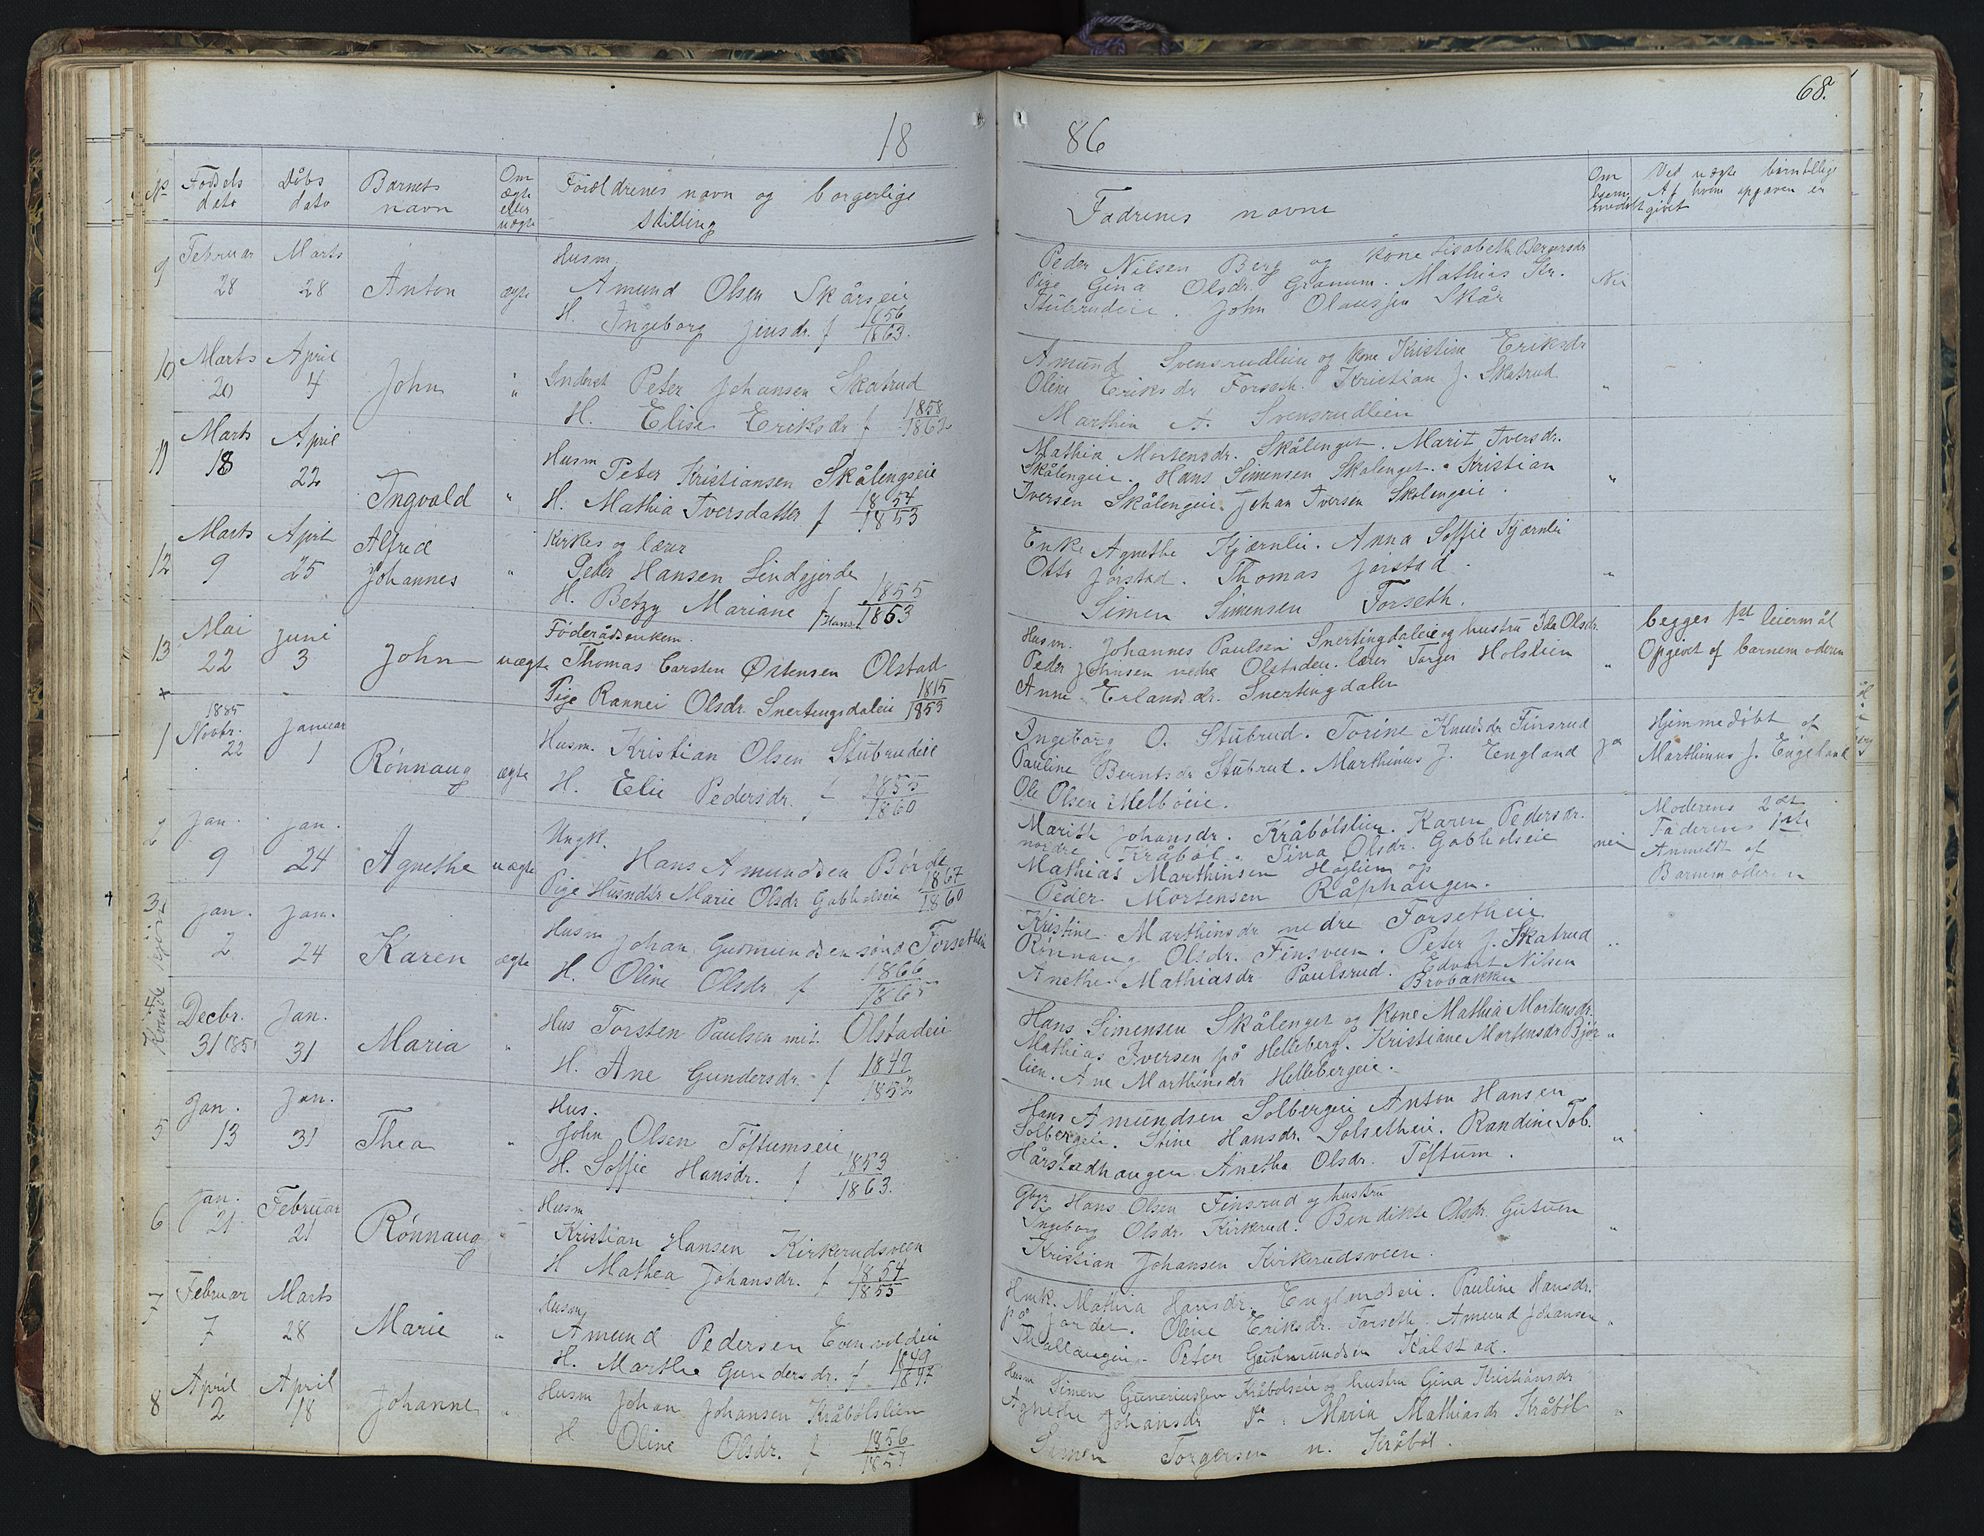 18
86
68.
No
Fødsels dato
Døbs dato
Barnets navn
Om ægte eller uægte
Forældrenes navn og borgerlige stilling
Fadrenes navne
Om hjemmedøbt
Ved uægte børn tillige
Af hvem opgaven er givet
9 Februar 28 Marts 28 Anton ægte
Husm.
Amund Olsen Skårseie
H. Ingeborg Jensdr. f 1856 1863.
Peder Nilsen Berg og kone Lisabeth Bergersdr
Pige Gina Olsdr. Granum. Mathias Kr.
Stubrudeie. John Olaussen Skår
Nei
10 Marts 20 April 4 John "
Inderst Peter Johansen Skatrud
H. Elise Eriksdr f 1858 1862
Amund Svensrudleie og kone Kristine Eriksdr
Oline Eriksdr Forseth. Kristian J. Skatrud
Marthin A. Svensrudleien
"
11 Marts 18 April 22 Ingvald "
Husm Peter Kristiansen Skålengseie
H. Mathia Iversdatter f 1854 1853
Mathia Mortensdr. Skålenget. Marit Iversdr.
Skålengeie. Hans Simensen Skalenget. Kristian
Iversen Skålengeie. Johan Iversen Skolengeie.
"
12 Marts 9 April 25 Alfred Johannes "
Kirkes og lærer
Peder Hansen Lindgjerde
H. Betzy Mariane Hans. f 1855 1863
Enke Agnethe Kjærnlie. Anna Soffie Kjærnli
Otto Jørstad. Thomas Jørstad.
Simen Simensen Forseth.
"
13 Mai 22 Juni 3 John uægte
Føderådsenkem.
Thomas Carsten Østensen Olstad 1815
Pige Rannei Olsdr. Snertingsdaleie 1853
Husm. Johannes Paulsen Snertingdaleie og hustru Ida Olsdr.
Peder Johnsen nedre Olstaden. lærer Torger Holslien
Anne Erlandsdr. Snertingdalen
"
begges 1st leiermål
Opgivet af barnemoderen
+
1 1885 Novbr. 22 Januar 1 Rønnaug ægte
Husm. Kristian Olsen Stubrudeie
H. Elie Pedersdr. f 1855 1860
Ingeborg O. Stubrud. Torine Knudsdr Finsrud
Pauline Berntsdr Stubrud. Marthinus J. England
Ole Olsen Melbøeie.
ja
Hjemmedøbt af
Marthinus J. Engeland
2 Jan. 9 Jan. 24 Agnethe uægte
Ungk.
Hans Amundsen Børde 1867
Pige Husmdtr Marie Olsdr Gobholseie 1860
Marith Johansdr. Kråbølslien. Karen Pedersdr.
nordre Kråbøl. Sina Olsdr. Gobholseie
Mathias Marthinsen Høglien og
Peder Mortensen Råphaugen.
nei
Moderens 2det
Faderens 1ste
Anmeldt af
Barnemoderen
3 Jan. 2 Jan. 24 Karen ægte
Husm Johan Gudmundsen søndr Forsetheie
H. Oline Olsdr. f 1866 1865
Kristine Marthinsdr nedre Forsetheie
Rønnaug Olsdr. Finsveen. Peter J. Skatrud
Anethe Mathiasdr Paulsrud. Edvart Nilsen Brobakken
"
Kvindekjøn
Decbr. 31 1885 Jan. 31 Maria "
Hus Torsten Paulsen mit. Olstadeie
H. Ane Gundersdr. f 1849 1852
Hans Simensen Skålenget og kone Mathia Mortensdr.
Mathias Iversen på Helleberg. Kristiane Mortensdr Bjør
lien. Ane Marthinsdr Hellebergeie.
"
5 Jan. 13 Jan. 31 Thea "
Hus.
John Olsen Toftumseie
H. Soffie Hansdr. f 1853 1863.
Hans Amundsen Solbergeie Anton Hansen
Solbergeie. Stine Hansdr. Solsetheie. Randine Tob.
Hårstadhaugen. Anetha Olsdr. Toftum.
"
6 Jan. 21. Februar 21 Rønnaug "
Husm
Kristian Hansen Kirkerudsveen
H Mathea Johansdr. f 1854 1855
Gbgr. Hans Olsen Finsrud og hustru
Ingeborg Olsdr. Kirkerud. Bendikte Olsdr. Gutuen
Kristian Johansen Kirkerudsveen.
"
7 Februar 7 Marts 28 Marie "
Husm
Amund Pedersen Evenvoldeie
H. Marthe Gundersdr. f 1849 1847.
Husk. Mathia Hansdr. Englandseie. Pauline Hansdr.
på Jordet. Oline Eriksdr. Forseth. Amund Johansen
Peter Gudmundsen Kalstad.
"
8 April 2 April 18 Johanne "
Husm Johan Johansen Kråbølslien
H Oline Olsdr. f 1856 1857
Husm Simen Gunerussen Kråbølseie og hustru Gina Kristiansdr
Agnethe Johansdr Do. Maria Mathiasdr Kråbøl
Simen Torgersen n. Kråbøl.
"